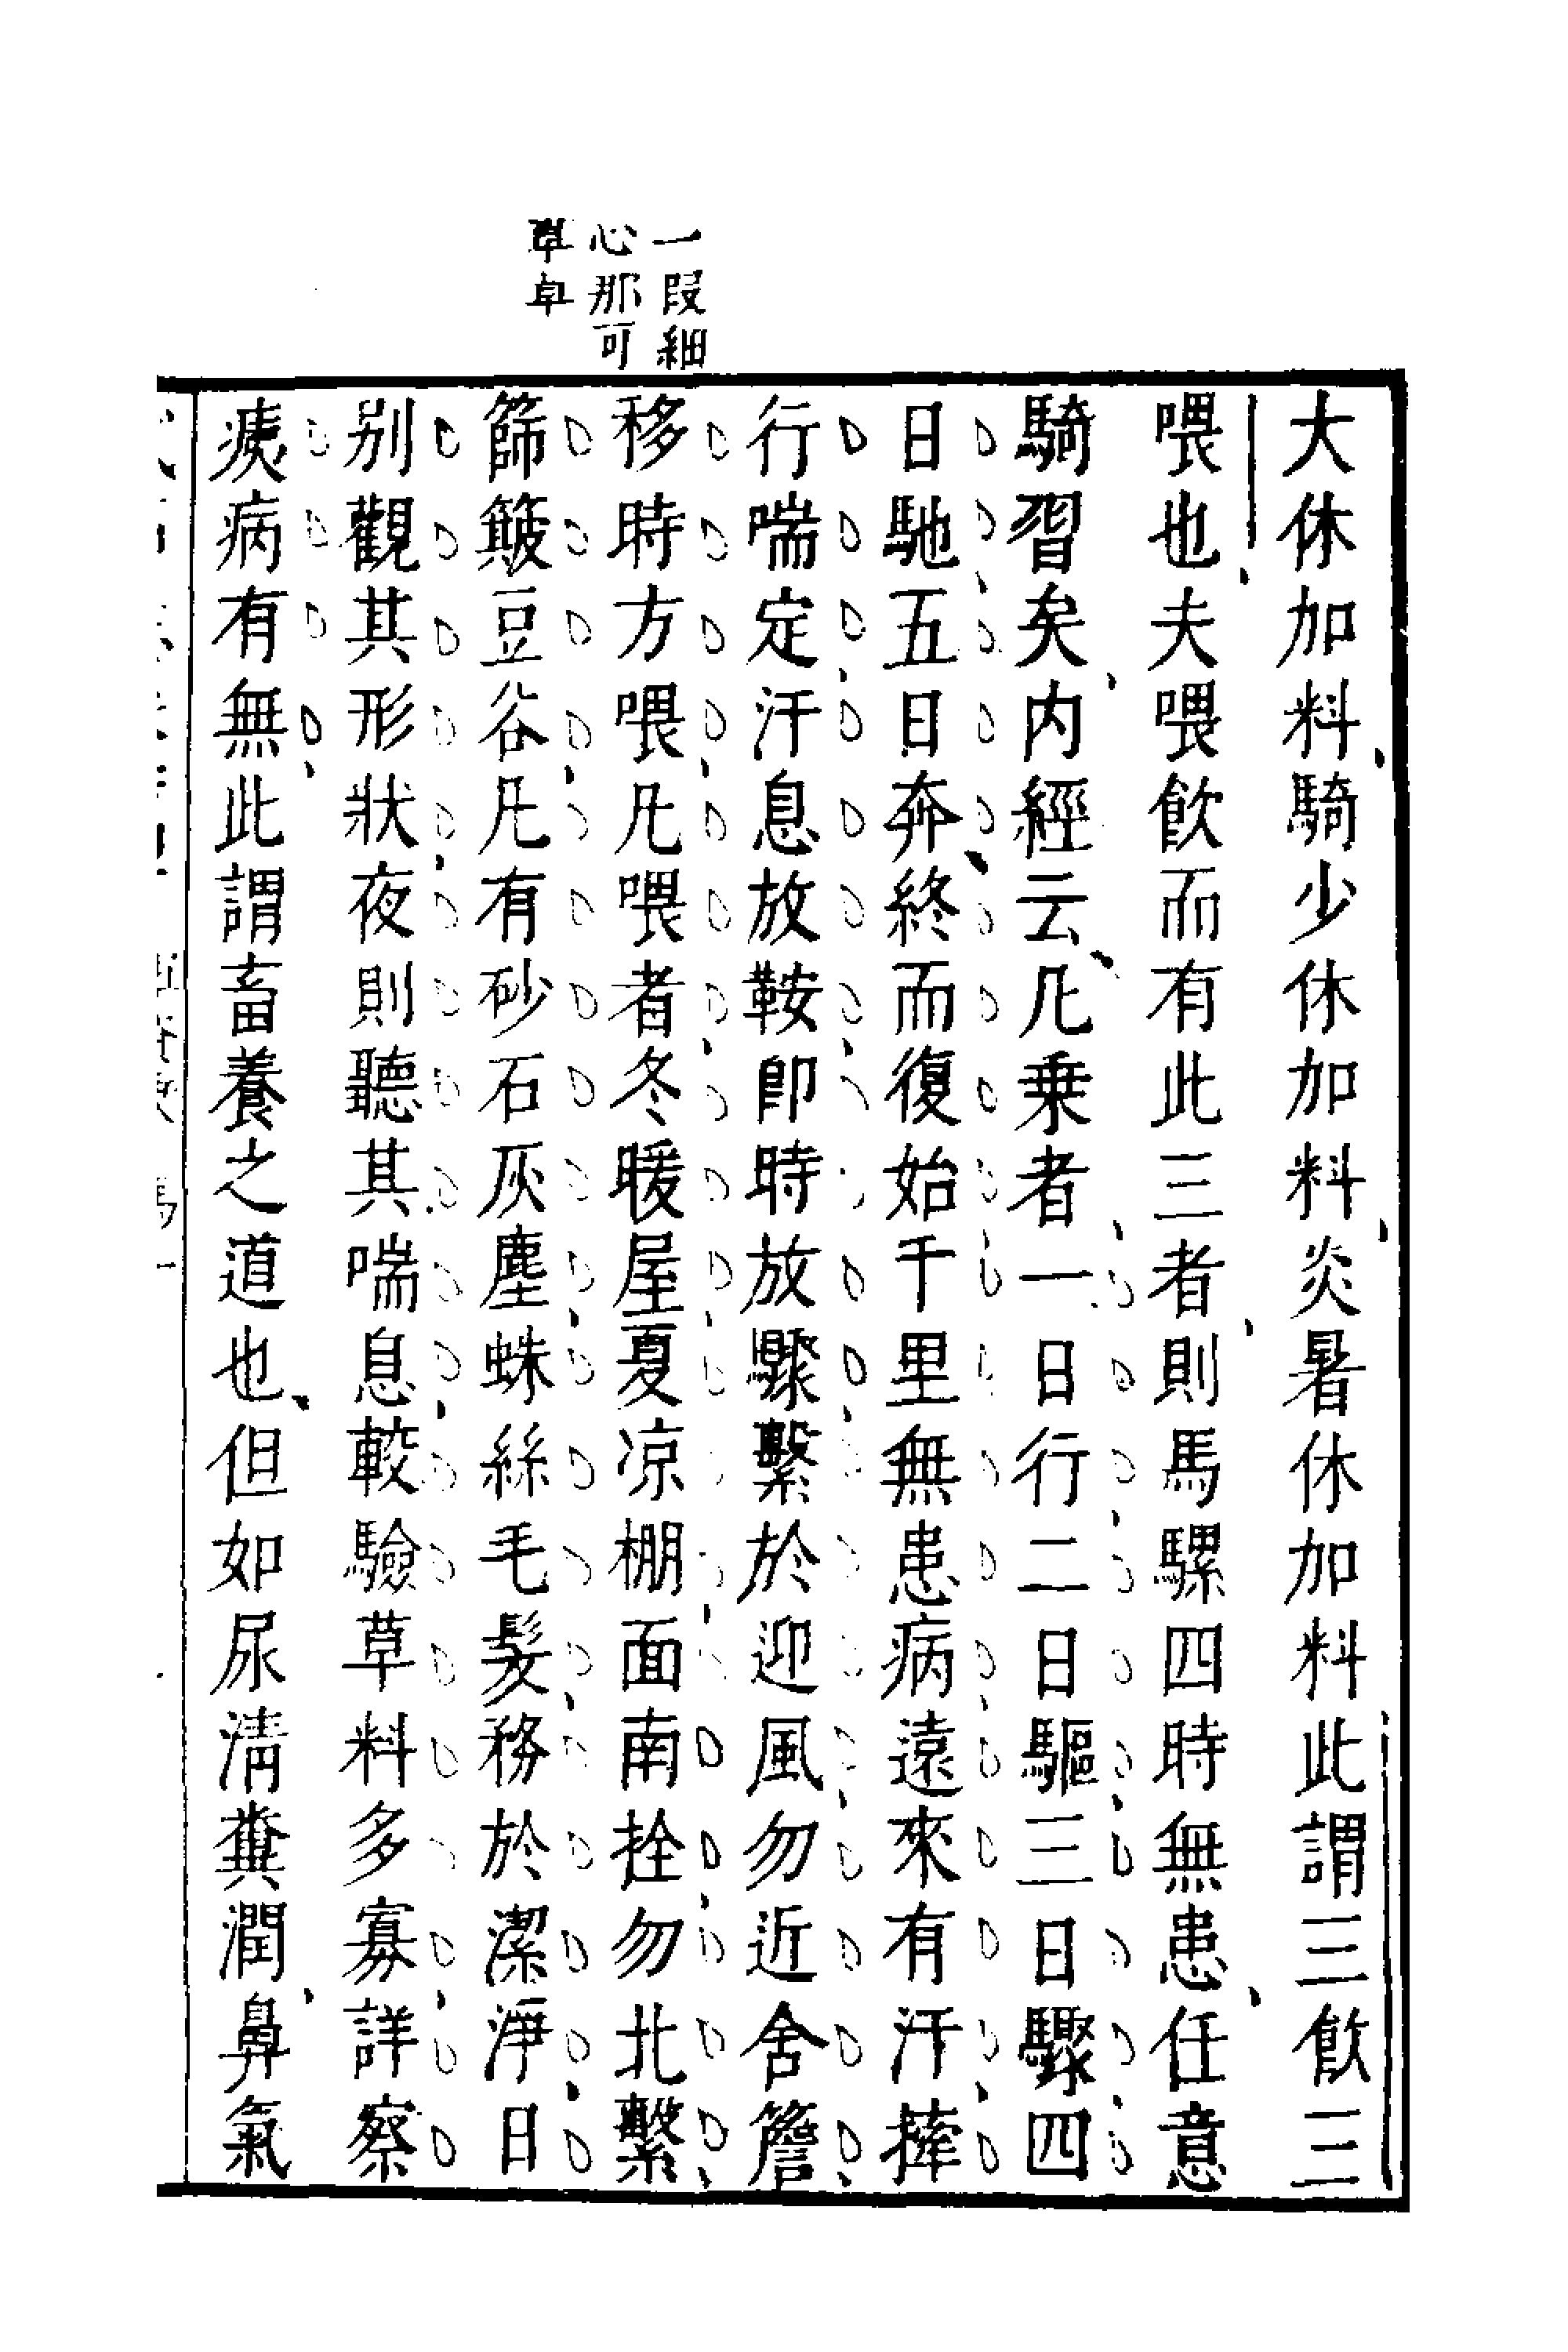 一段細
心那可
草卓
大休加料騎少休加料炎暑休加料此謂三飲三
喂也夫喂飲而有此三者則馬騾四時無患任意
騎習矣内經云凡乗者一日行二日驅三日驟四
日馳五日奔終而復始千里無患病遠來有汗捧
行喘定汗息放鞍即時放驟繫於迎風勿近舍簷
移時方喂凡喂者冬暖屋夏凉棚面南拴勿北繫
篩簸豆谷凡有砂石灰塵蛛絲毛髮務於潔淨日
别觀其形狀夜則聽其喘息較驗草料多寡詳察
痍病有無此謂畜養之道也但如尿清糞潤鼻氣